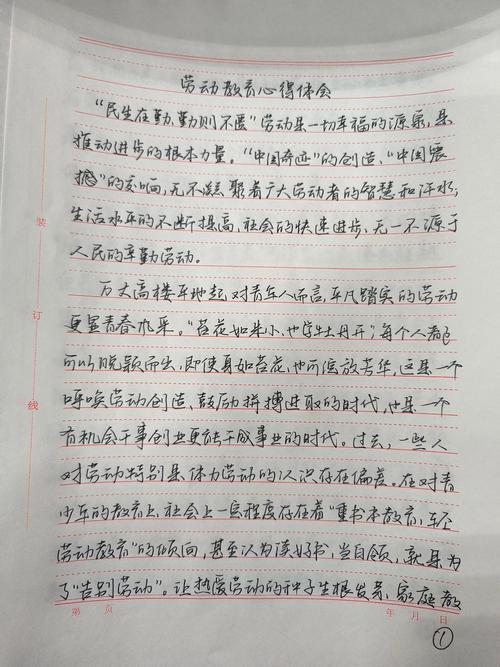 劳动教育心得体会
“民生在勤，勤则不匮”劳动是一切幸福的源泉，是
推动进步的根本力量。“中国奇迹”的创造、“中国震
撼”的影响，无不凝聚着广大劳动者的智慧和汗水；
生活水平的不断提高，社会的快速进步，无一不源于
人民的辛勤劳动。
万丈高楼平地起，对青年人而言，平凡踏实的劳动
更显青春风采。“苔花如米小，也学牡丹开”；每个人都
可以脱颖而出，即使身如苔花，也可绽放芳华，这是一个
呼唤劳动创造、鼓励拼搏进取的时代，也是一个
有机会干事创业更能干成事业的时代。过去，一些人
对劳动特别是体力劳动的认识存在偏差。在对青
少年的教育上，社会上一定程度存在着“重书本教育、轻
劳动教育”的倾向，甚至认为读好书，当白领，就是为
了“告别劳动”。让热爱劳动的种子生根发芽、家庭教
装
订
线
第 页 年 月 日
1